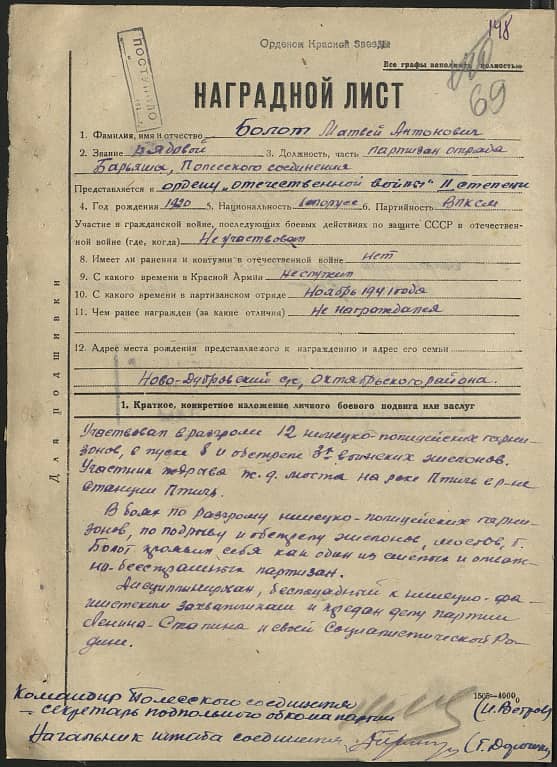 198
Орденом Красной Звезды
Все графы заполнять полностью
69
НАГРАДНОЙ ЛИСТ
1. Фамилия, имя и отчество Болот Матвей Антонович
2. Звание Рядовой 3. Должность, часть партизан отряда
Барьяша, Полесского соединения
Представляется к ордену „отечественной войны" II степени
4. Год рождения 1920 5. Национальность белорусс 6. Партийность ВЛКСМ
Участие в гражданской войне, последующих боевых действиях по защите СССР и отечествен-
ной войне (где, когда) Не участвовал
8. Имеет ли ранения и контузии в отечественной войне нет
9. С какого времени в Красной Армии не служит
10. С какого времени в партизанском отряде Ноябрь 1941 года
11. Чем ранее награжден (за какие отличия) Не награждался
12. Адрес места рождения представляемого к награждению и адрес его семьи
Ново-Дубровский с/с, Октябрьского района.
Для подшивки
1. Краткое, конкретное изложение личного боевого подвига или заслуг
Участвовал в разгроме 12 немецко-полицейских гарни-
зонов, в пуске и обстреле воинских эшелонов.
Участник взрыва ж.д. моста на реке Птичь в р-не
станции Птичь.
В боях по разгрому немецко-полицейских гарни-
зонов, по подрыву и обстрелу эшелонов, мостов, т.
Болот проявил себя как один из смелых и отваж-
но-бесстрашных партизан.
Дисциплинирован, беспощадный к немецко-фа-
шистским захватчикам и предан делу партии
Ленина-Сталина и своей Социалистической Ро-
дине.
Командир Полесского соединения
– секретарь подпольного обкома партии (И. Ветров)
Начальник штаба соединения